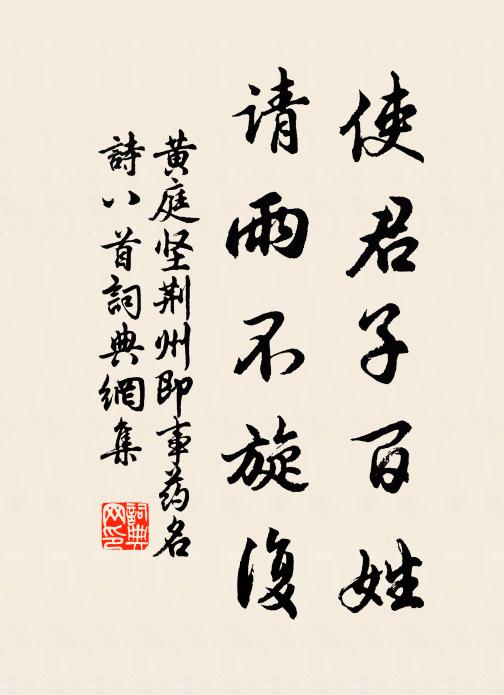 使君子百姓
请雨不旋復
黄庭坚荆州即事药名
詩八首詞典網集
詞典
网印